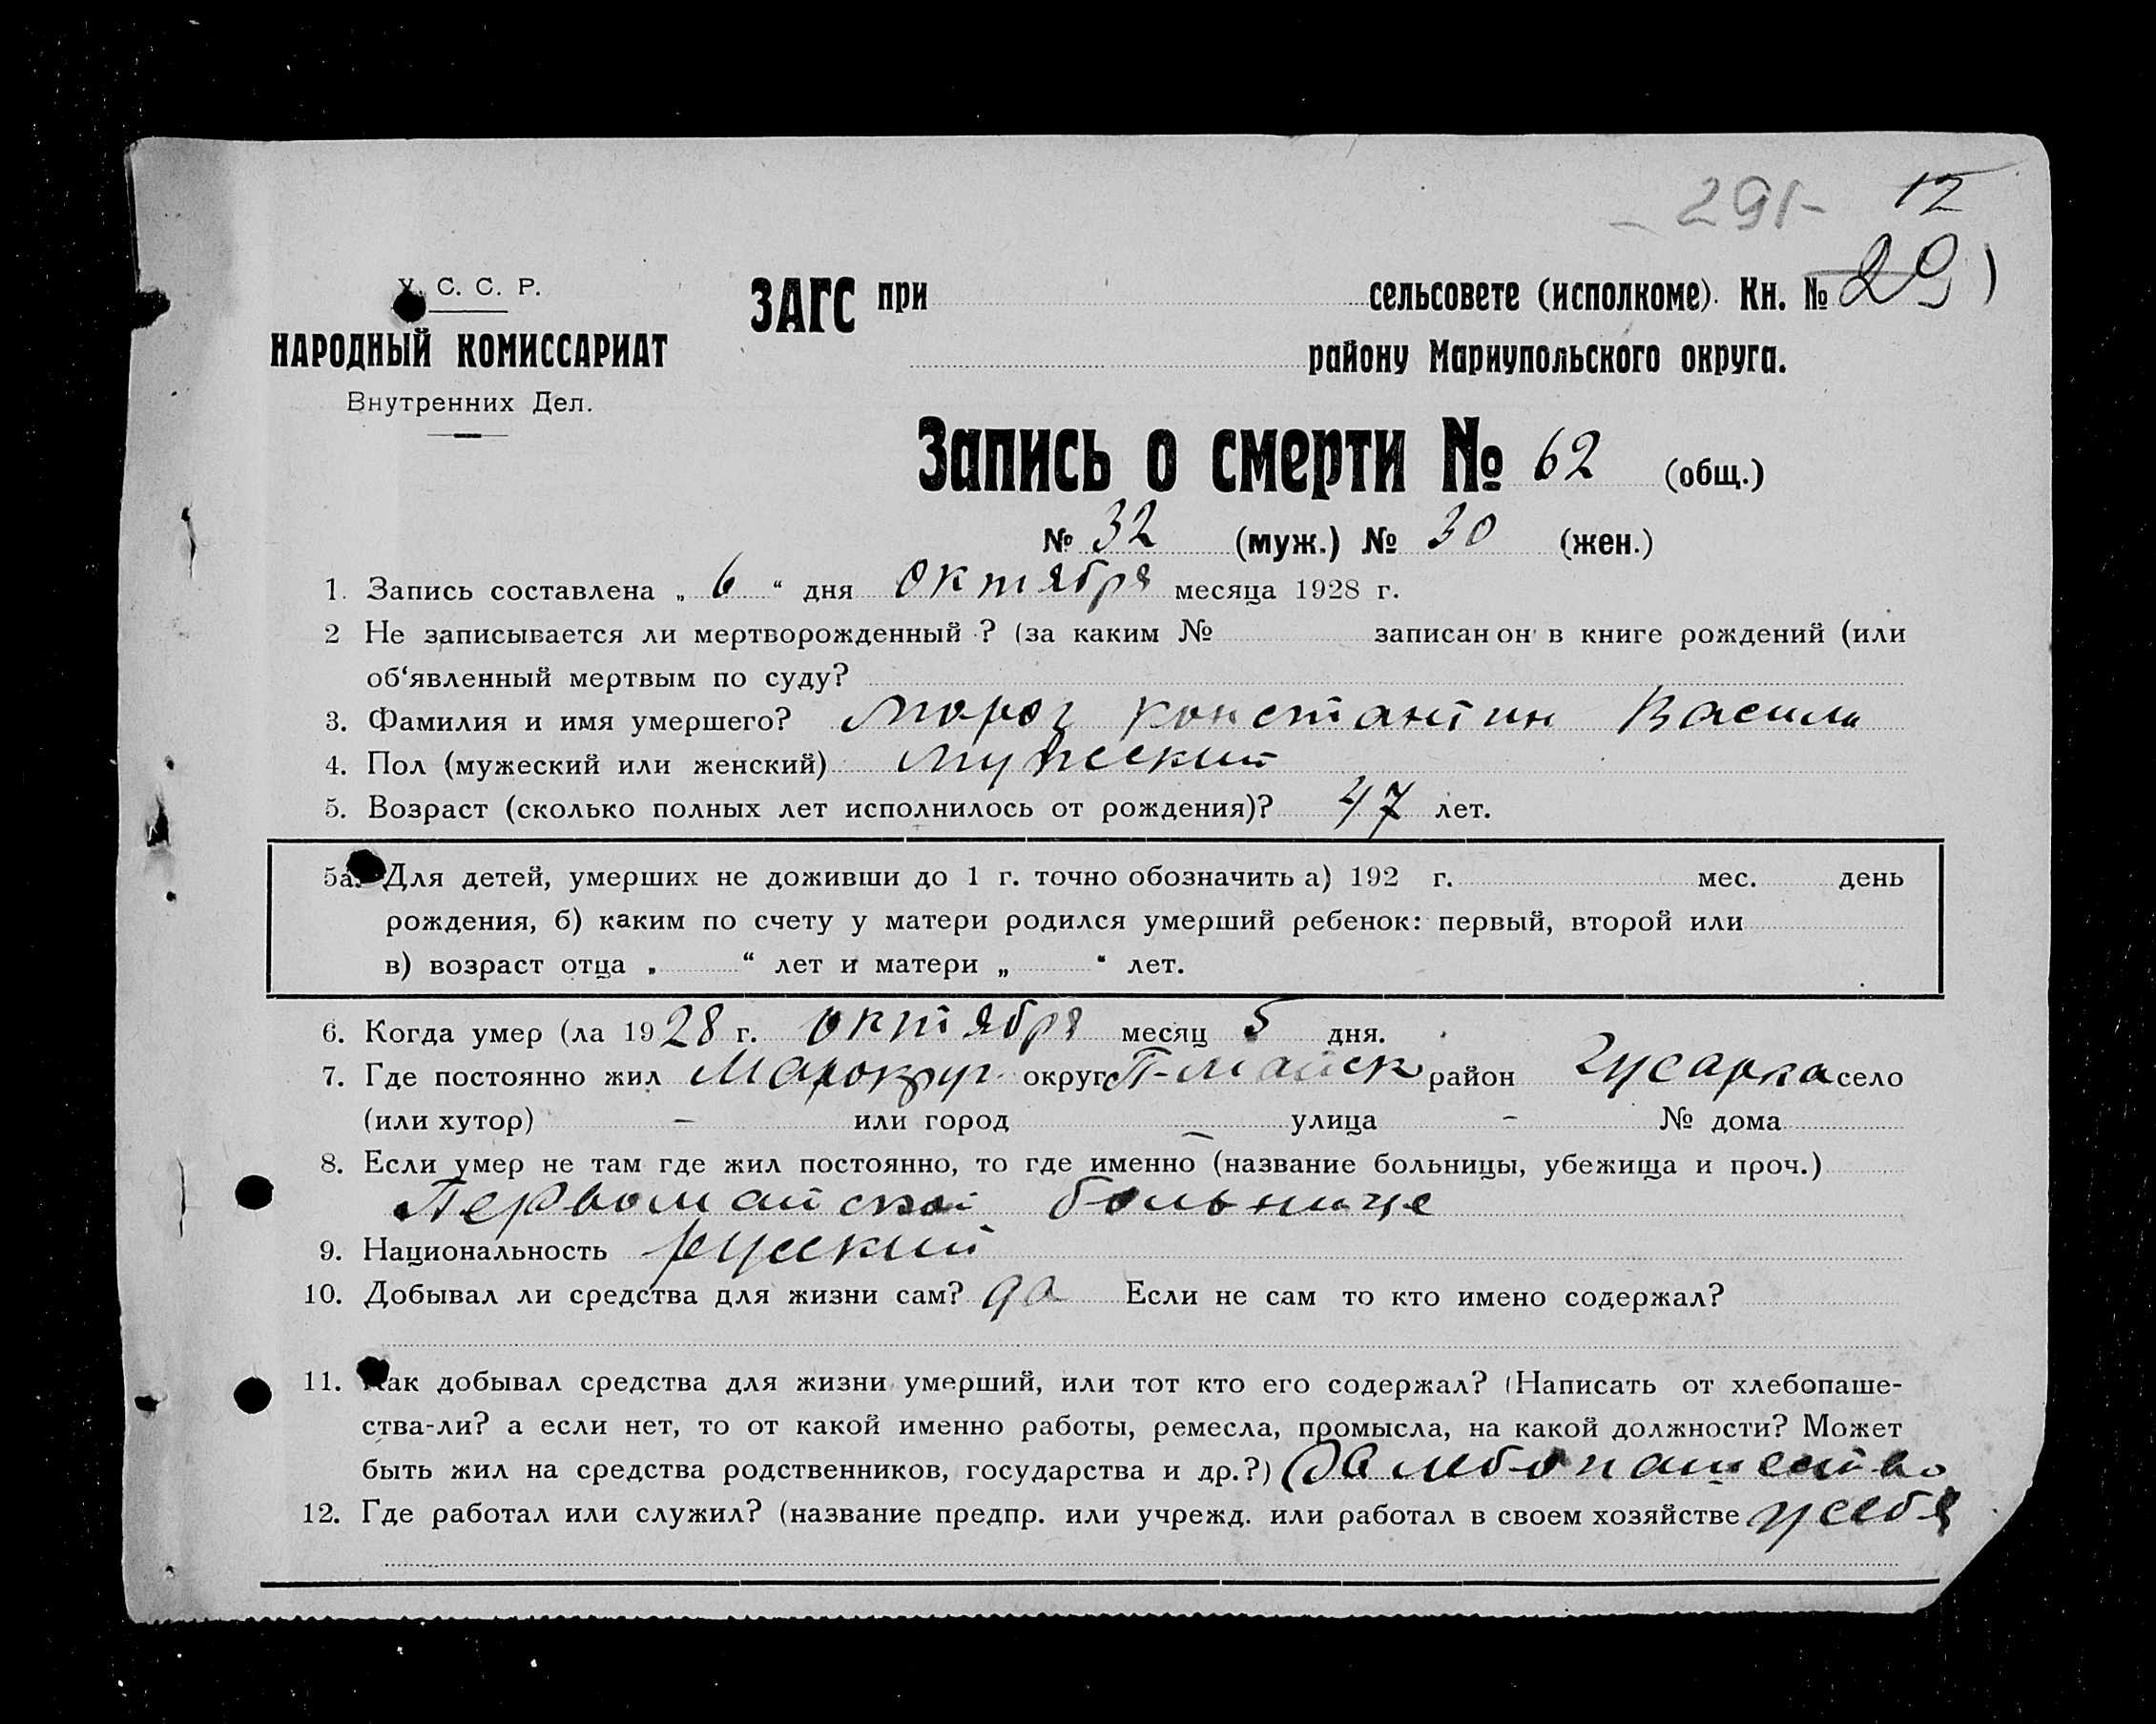 - 291- 12
У. С. С. Р.
НАРОДНЫЙ КОМИССАРИАТ
Внутренних Дел.
ЗАГС при сельсовете (исполкоме). Кн. № 29
району Мариупольского округа.
Запись о смерти № 62 (общ.)
№ 32 (муж.) № 30 (жен.)
1. Запись составлена „ 6 “ дня октября месяца 1928 г.
2 Не записывается ли мертворожденный ? (за каким № записан он в книге рождений (или
об‘явленный мертвым по суду?
3. Фамилия и имя умершего? Мороз константин Васили
4. Пол (мужеский или женский) мужеский
5. Возраст (сколько полных лет исполнилось от рождения)? 47 лет.
5а. Для детей, умерших не доживши до 1 г. точно обозначить а) 192 г. мес. день
рождения, б) каким по счету у матери родился умерший ребенок: первый, второй или
в) возраст отца „ “ лет и матери „ “ лет.
6. Когда умер (ла 1928 г. октября месяц 5 дня.
7. Где постоянно жил Марокруг округ П-майск район Гусарка село
(или хутор) – или город – улица – № дома
8. Если умер не там где жил постоянно, то где именно (название больницы, убежища и проч.)
Первомайской больнице
9. Национальность русский
10. Добывал ли средства для жизни сам? да Если не сам то кто имено содержал?
11. Как добывал средства для жизни умерший, или тот кто его содержал? (Написать от хлебопаше-
ства-ли? а если нет, то от какой именно работы, ремесла, промысла, на какой должности? Может
быть жил на средства родственников, государства и др.?)
12. Где работал или служил? (название предпр. или учрежд. или работал в своем хозяйстве у себя